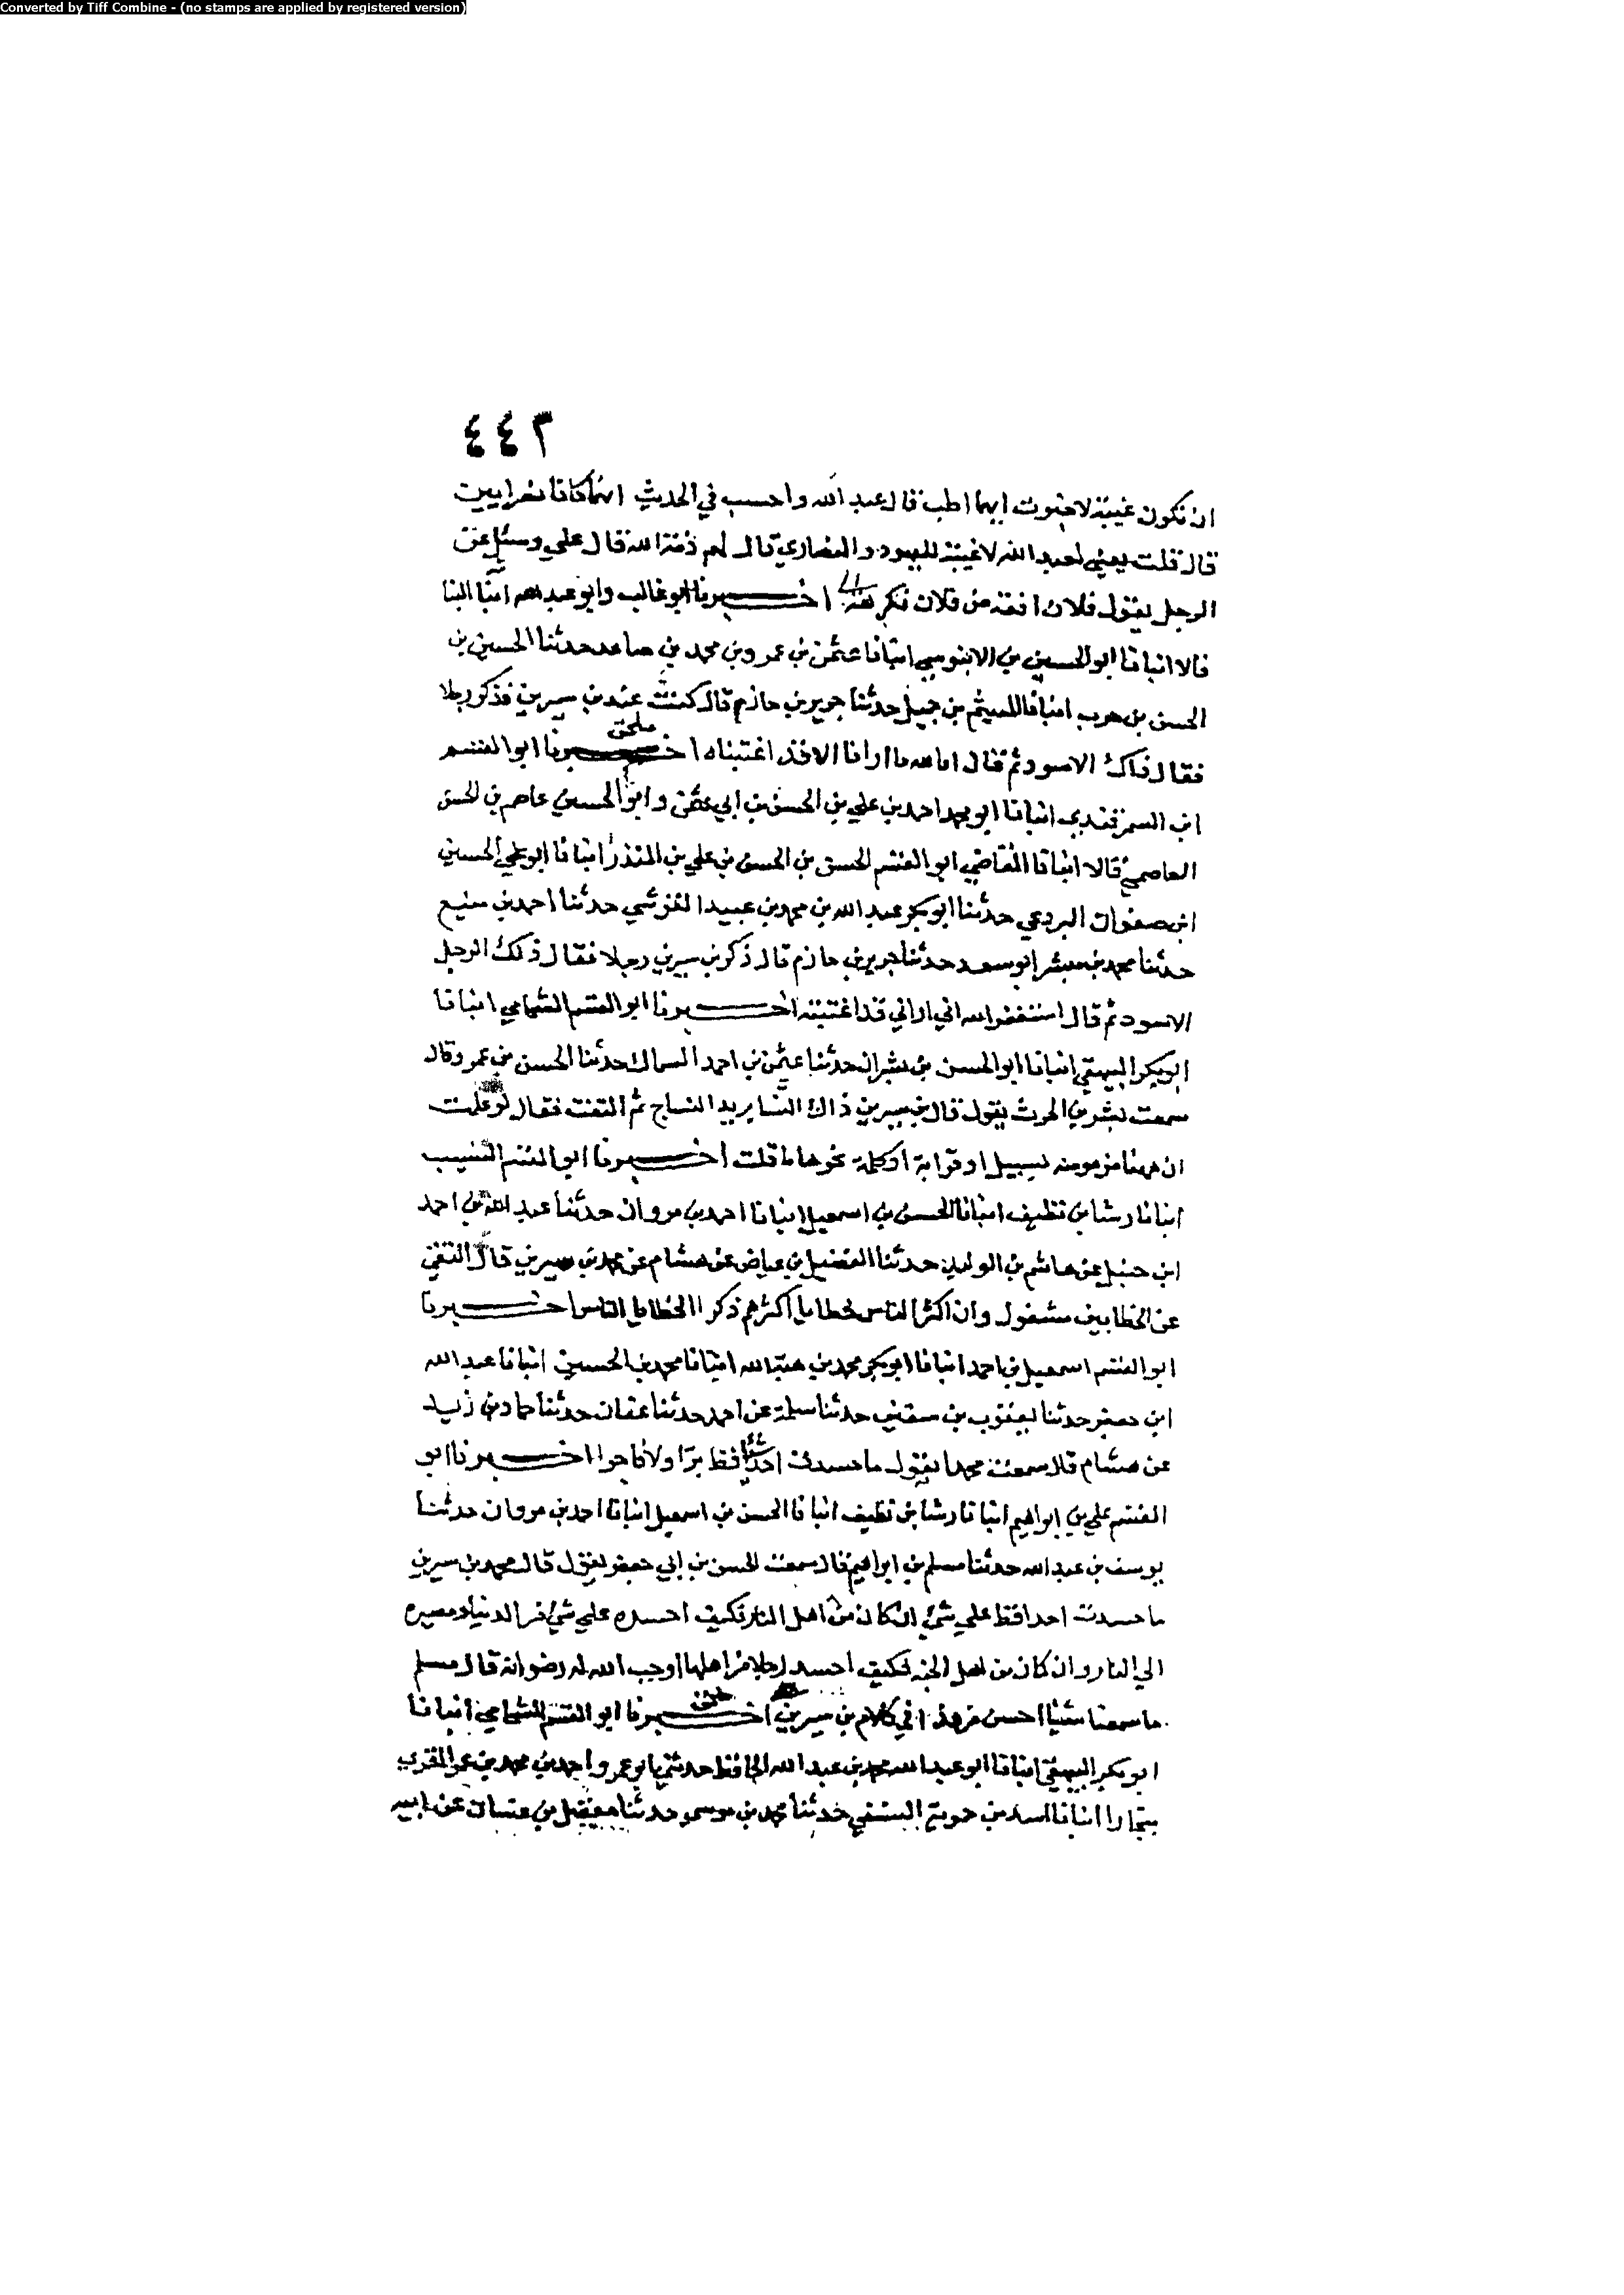 Converted by Tiff Combine - (no stamps are applied by registered version)
٤٤٣
ان تكون غيبة لاخبرت ايهما اطب قال عبد الله واحسب في الحديث انهما كانا نصرانيين
قال قلت يعني لعبد الله لا غيبة لليهود والنصاري قال لهم ذمة الله قال علي وسئل عن
الرجل يقول فلان افقه من فلان فكرهه اخبرنا ابو غالب وابو عبد الله ابنا البنا
قالا انبانا ابو الحسين بن الابنوسي انبانا عثمن بن عمرو بن محمد بن صاعد حدثنا الحسين بن
الحسن بن حرب انبانا الهيثم بن جميل حدثنا جرير بن حازم قال كنت عند بن سيرين فذكر رجلا
فقال ذاك الاسود ثم قال انا لله ما ارانا الا قد اغتبناه اخبرنا ابو القسم
ملحق
ابن السمرقندي انبانا ابو محمد احمد بن علي بن الحسن بن ابي عثمن وابو الحسين عاصم بن الحسن
العاصمي قالا انبانا القاضي ابو القسم الحسن بن الحسن بن علي بن المنذر انبانا ابو علي الحسين
ابن صفوان البردعي حدثنا ابو بكر عبد الله بن محمد بن عبيد القرشي حدثنا احمد بن منيع
حدثنا محمد بن ميسر ابو سعد حدثنا جرير بن حازم قال ذكر بن سيرين رجلا فقال ذلك الرجل
الاسود ثم قال استغفر الله اني اراني قد اغتبته اخبرنا ابو القسم الشحامي انبانا
ابو بكر البيهقي انبانا ابو الحسن بن بشران حدثنا عثمن بن احمد السماك حدثنا الحسن بن عمرو قال
سمعت بشر بن الحرث يقول قال بن سيرين ذاك النسا يريد النساج ثم التفت فقال لو علمت
ان ههنا من هو منه بسبيل او قرابة او كلمة نحوها ما قلت اخبرنا ابو القسم النسيب
انبانا رشا بن نظيف انبانا الحسن بن اسمعيل انبانا احمد بن مروان حدثنا عبد الله بن احمد
ابن حنبل عن هاشم بن الوليد حدثنا الفضيل بن عياض عن هشام عن محمد بن سيرين قال التقي
عن الخطايين مشغول وان اكثر الناس خطايا اكثرهم ذكرا لخطايا الناس اخبرنا
ابو القسم اسمعيل بن احمد انبانا ابو بكر محمد بن هبة الله انبانا محمد بن الحسين انبانا عبد الله
ابن جعفر حدثنا يعقوب بن سفين حدثنا سلمة عن احمد حدثنا عفان حدثنا حماد بن زيد
عن هشام قال سمعت محمدا يقول ما حسدت احدا شيئا قط برا ولا فاجرا اخبرنا ابو
القسم علي بن ابراهيم انبانا رشا بن نظيف انبانا الحسن بن اسمعيل انبانا احمد بن مروان حدثنا
يوسف بن عبد الله حدثنا مسلم بن ابراهيم قال سمعت الحسن بن ابي جعفر يقول قال محمد بن سيرين
ما حسدت احدا قط علي شي ان كان من اهل النار فكيف احسده علي شي من الدنيا ومصيره
الي النار وان كان من اهل الجنة فكيف احسد رجلا من اهلها اوجب الله له رضوانه قال مسلم
ما سمعنا شيئا احسن من هذا في كلام بن سيرين اخبرنا ابو القسم الشحامي انبانا
ملحق
ابو بكر البيهقي انبانا ابو عبد الله محمد بن عبد الله الحافظ حدثني ابو عمرو احمد بن محمد بن عمر المقري
ببخارا انبانا السد بن حمويه النسفي حدثنا محمد بن موسي حدثنا مفضل بن غسان عن ابيه